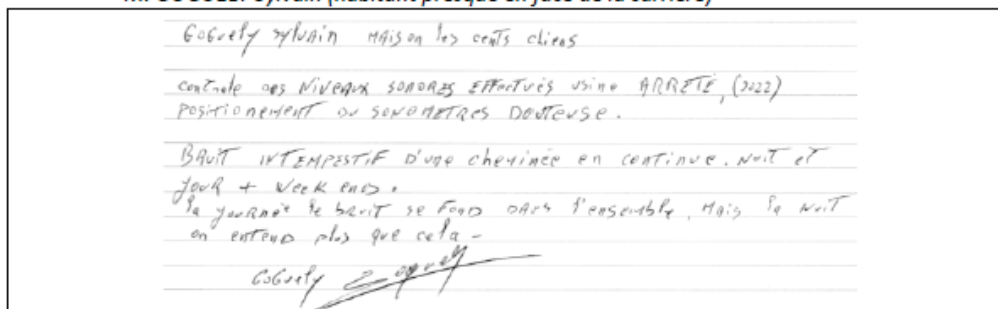 GOGuely sylvAin MAison les cents chiens
controle DES NIVEAUX SONORES EFFectués usine ARRETÉ, (2022)
POSITIONEMENT DU SONOMETRES DOUTEUSE.
BRUIT INTEMPESTIF D'une cheminée en continue. NUIT ET
JOUR + WEEK ENDS.
la JOURNéE le bruit se FOND DANS l'ensemble, MAis la NUIT
on ENTEND plus que cela -
GOGuely